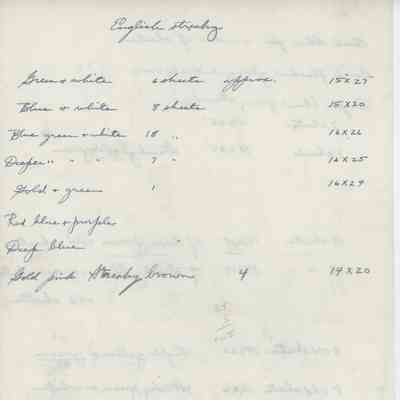 English streaky
Green + white 6 sheets approx. 15 x 25
Blue + white 8 sheets 15 x 20
Blue green + white 18 " 16 x 22
Deeper " " " 7 " 16 x 25
Gold + green 1 16 x 29
Red blue + purples
Deep blue "
Gold pink Streaky brown 4 14 x 20